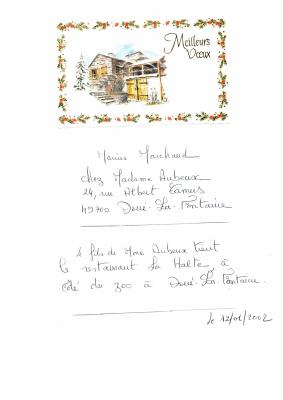 Meilleurs
Vœux
Marius Marchand
chez Madame Aubeux
24, rue Albert Camus
49700 Doué-La-Fontaine
le fils de Mme Aubeux tient
le restaurant La Halte, à
côté du zoo à Doué-La-Fontaine.
le 12/01/2002